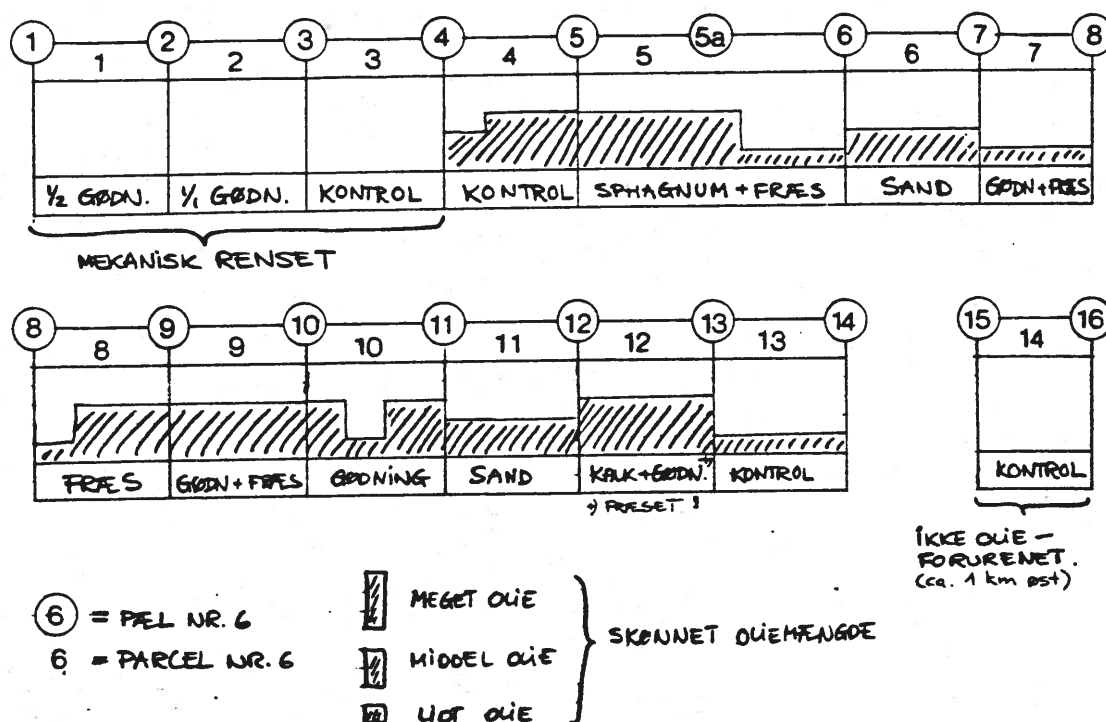 1 2 3 4 5 5a 6 7 8
1 2 3 4 5 6 7
½ GØDN. 1/1 GØDN. KONTROL KONTROL SPHAGNUM + FRÆS SAND GØDN + FRÆS
MEKANISK RENSET
8 9 10 11 12 13 14 15 16
8 9 10 11 12 13 14
FRÆS GØDN + FRÆS GØDNING SAND KALK + GØDN. KONTROL KONTROL
FRÆSET !
IKKE OLIE –
FORURENET.
(ca. 1 km øst)
6 = PÆL NR. 6
6 = PARCEL NR. 6
MEGET OLIE
MIDDEL OLIE
LIDT OLIE
SKØNNET OLIEMÆNGDE